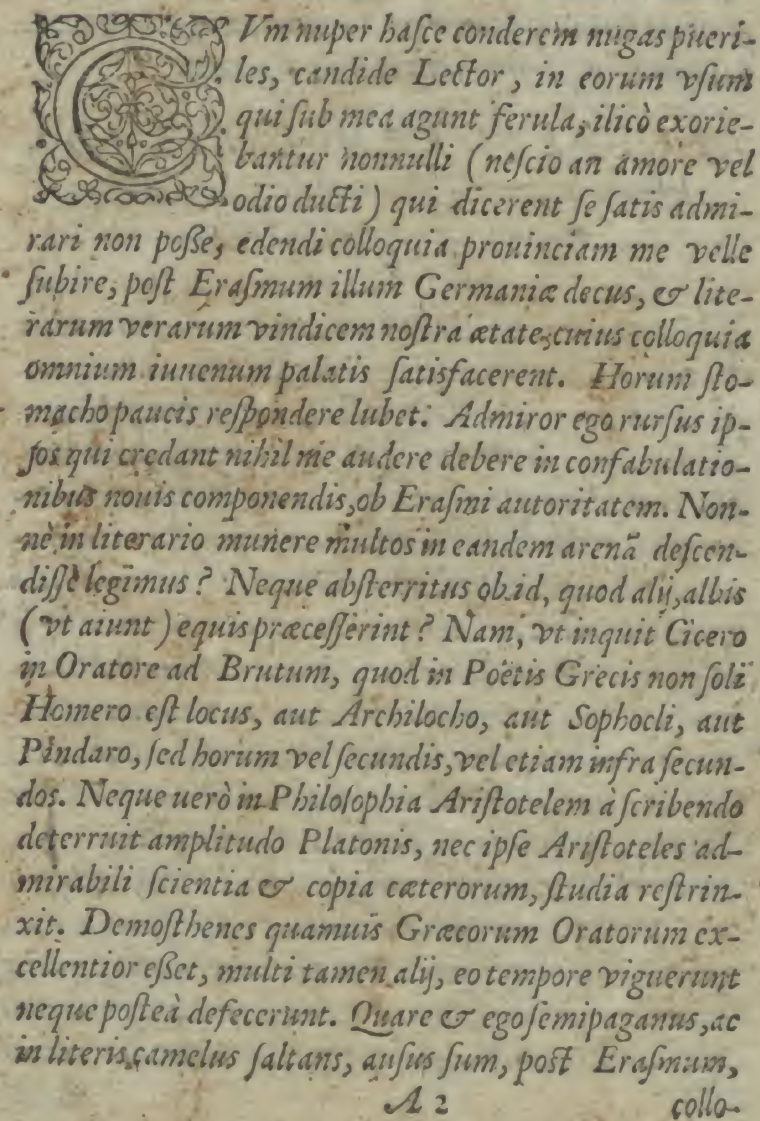 CVm nuper hasce conderem nugas pueri-
les, candide Lector, in eorum vsum
qui sub mea agunt ferula, ilicò exorie-
bantur nonnulli (nescio an amore vel
odio ducti) qui dicerent se satis admi-
rari non posse, edendi colloquia prouinciam me velle
subire, post Erasmum illum Germaniæ decus, & lite-
rarum verarum vindicem nostra ætate, cuius colloquia
omnium iuuenum palatis satisfacerent. Horum sto-
macho paucis respondere lubet. Admiror ego rursus ip-
sos qui credant nihil me audere debere in confabulatio-
nibus nouis componendis, ob Erasmi autoritatem. Non-
nè in literario munere multos in eandem arenã descen-
disse legimus? Neque absterritus ob id, quod alij, albis
(vt aiunt) equis præcesserint? Nam, vt inquit Cicero
in Oratore ad Brutum, quod in Poëtis Grecis non soli
Homero est locus, aut Archilocho, aut Sophocli, aut
Pindaro, sed horum vel secundis, vel etiam infra secun-
dos. Neque uerò in Philosophia Aristotelem à scribendo
deterruit amplitudo Platonis, nec ipse Aristoteles ad-
mirabili scientia & copia cæterorum, studia restrin-
xit. Demosthenes quamuis Græcorum Oratorum ex-
cellentior esset, multi tamen alij, eo tempore viguerunt
neque posteà defecerunt. Quare & ego semipaganus, ac
in literis camelus saltans, ausus sum, post Erasmum,
A 2 collo-